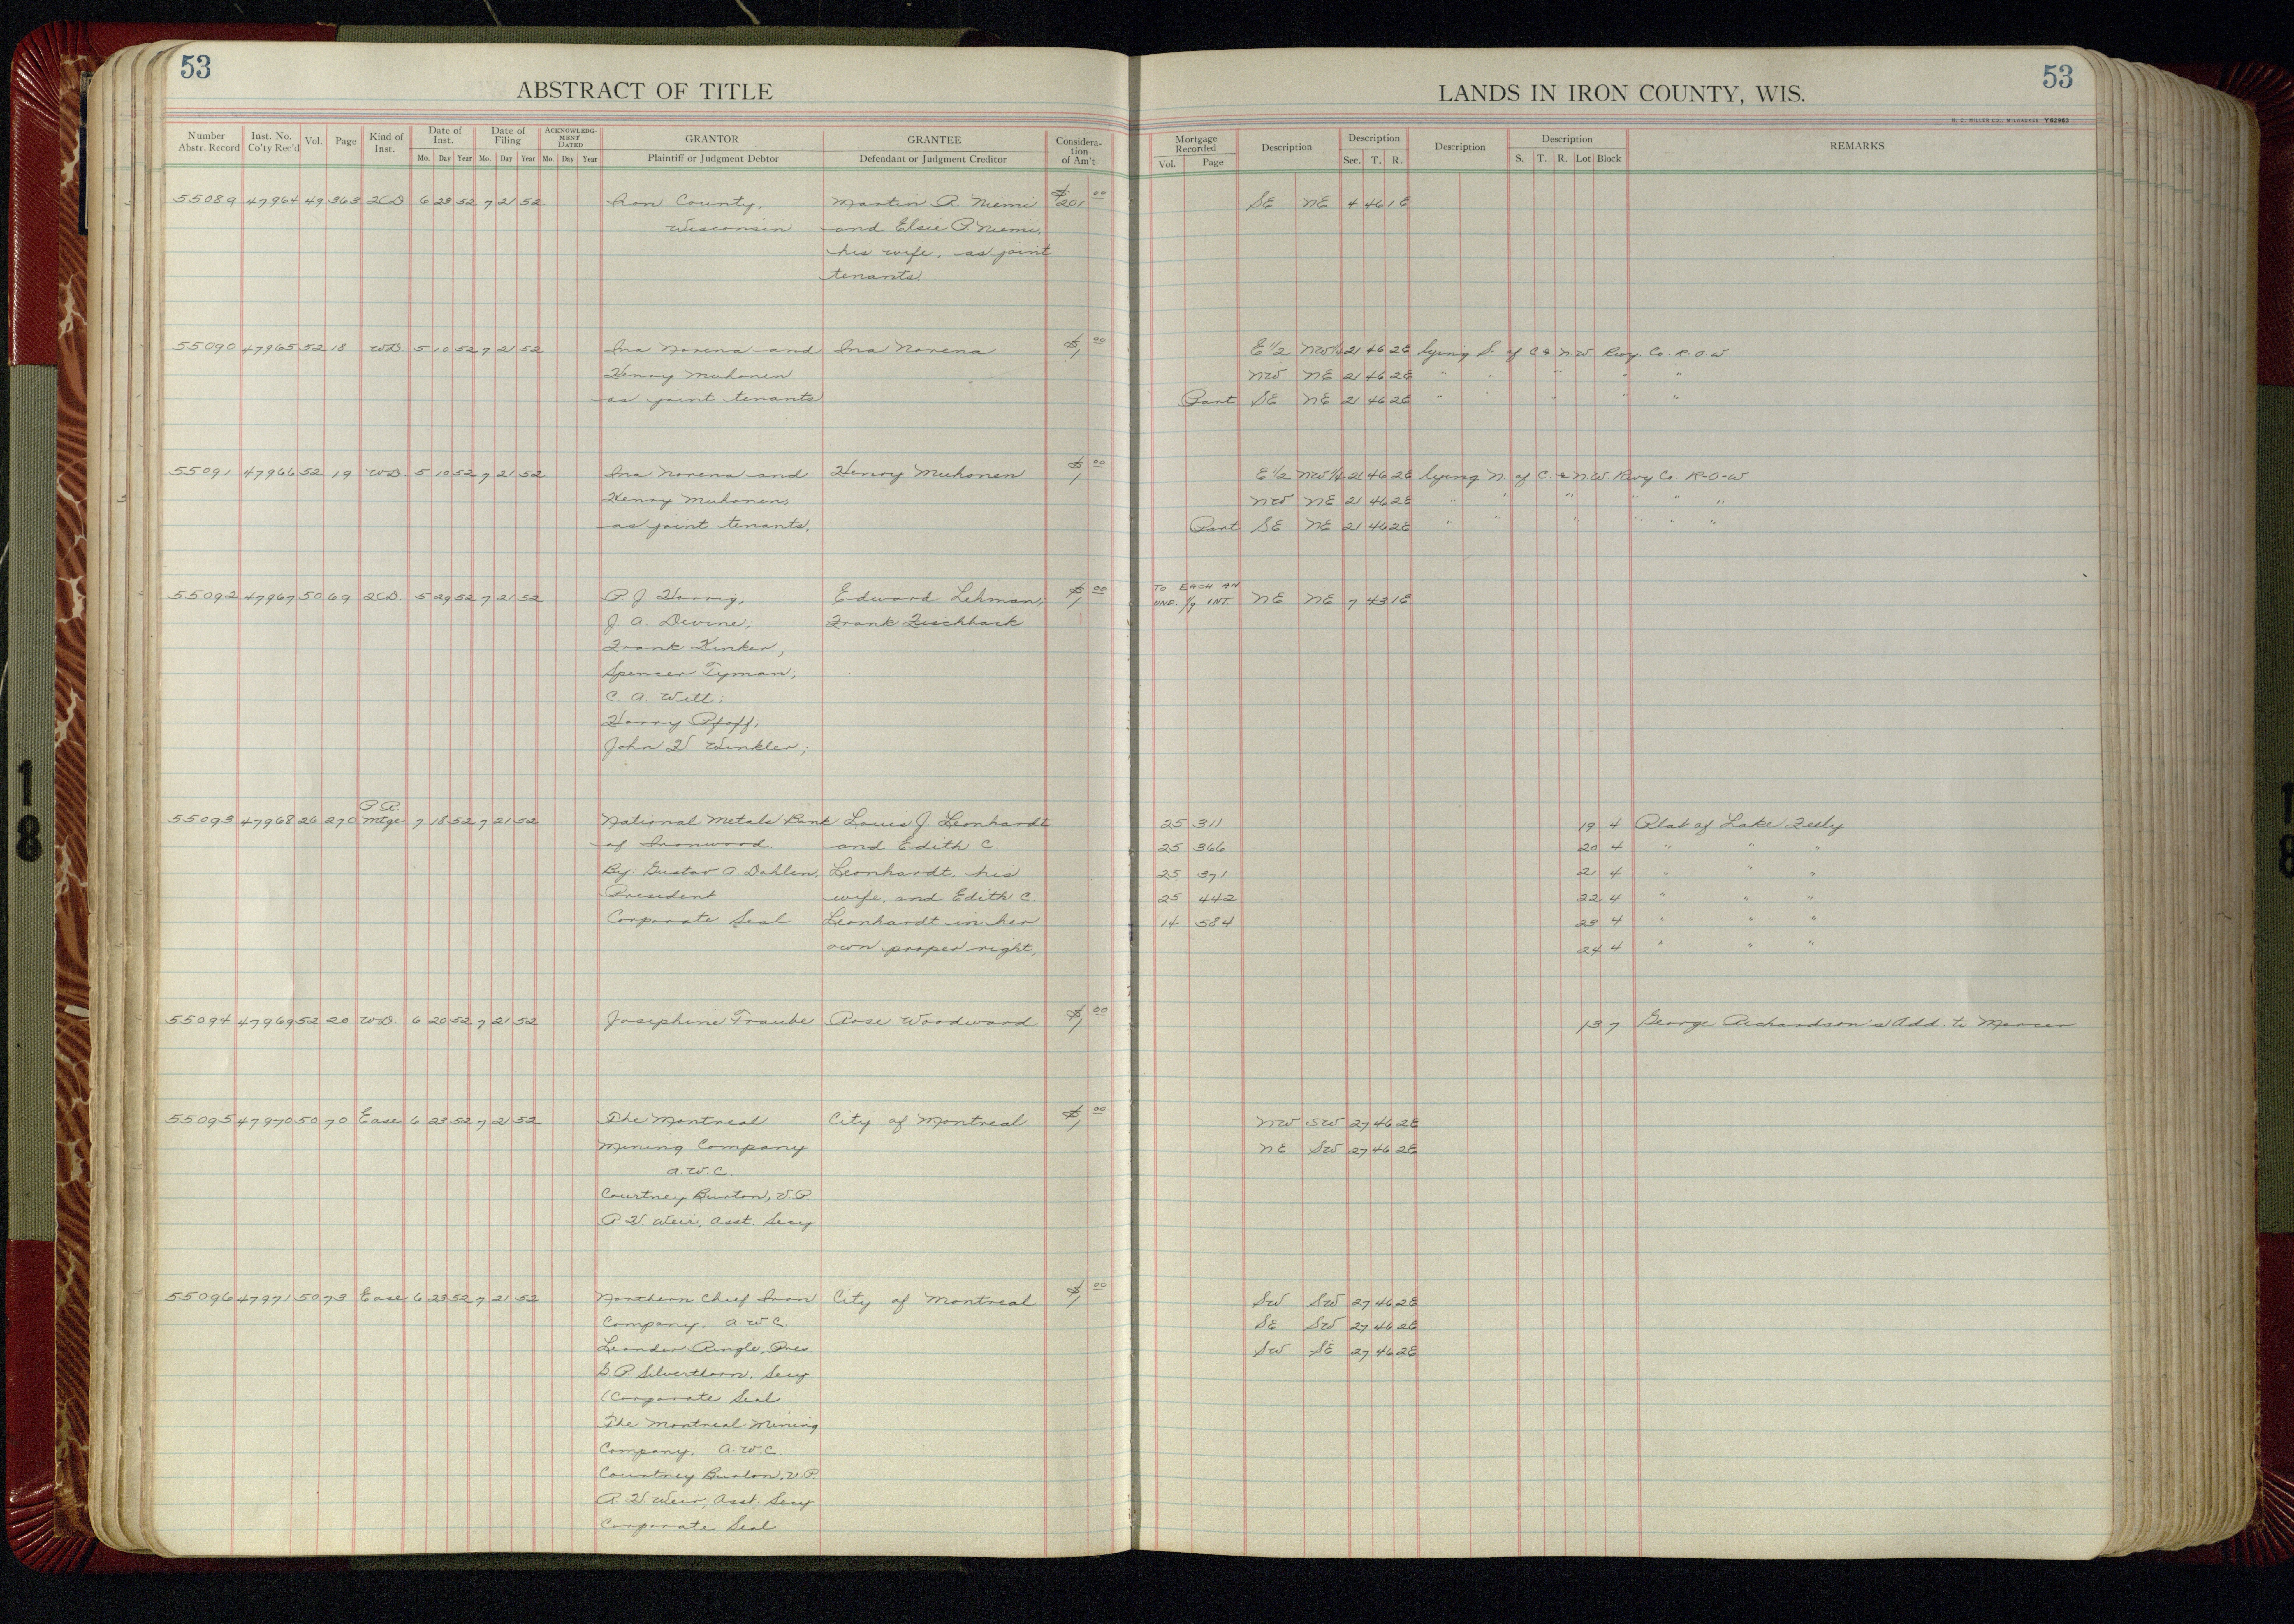 53
ABSTRACT OF TITLE
LANDS IN IRON COUNTY, WIS.
53
H. C. MILLER CO., MILWAUKEE Y62963
Number Abstr. Record Inst. No. Co'ty Rec'd Vol. Page Kind of Inst. Date of Inst. Mo. Day Year Date of Filing Mo. Day Year ACKNOWLEDGMENT DATED Mo. Day Year GRANTOR Plaintiff or Judgment Debtor GRANTEE Defendant or Judgment Creditor Consideration of Am't Mortgage Recorded Vol. Page Description Description Sec. T. R. Description Description S. T. R. Lot Block REMARKS
55089 47964 49 363 2CD 6 23 52 7 21 52 Iron County, Martin R. Niemi $201 00 SE NE 4 46 1E
Wisconsin and Elsie P Niemi,
his wife, as joint
tenants.
55090 47965 52 18 WD 5 10 52 7 21 52 Ina Norena and Ina Norena $1 00 E 1/2 NW1/4 21 46 2E lying S. of C & N.W. Rwy. Co. R.O.W
Henry Muhonen NW NE 21 46 2E " " " " "
as joint tenants Part SE NE 21 46 2E " " " " "
55091 47966 52 19 WD 5 10 52 7 21 52 Ina Norena and Henry Muhonen $1 00 E 1/2 NW1/4 21 46 2E lying N. of C. & N.W. Rwy Co R-O-W
Henry Muhonen, NW NE 21 46 2E " " " " " "
as joint tenants. Part SE NE 21 46 2E " " " " " "
55092 47967 50 69 2CD. 5 29 52 7 21 52 P. J. Edward Lehman; $1 00 TO EACH AN
UND. 1/9 INT. NE NE 7 43 1E
J. A. Devine; Frank
Frank Kinker;
Spencer Tyman;
C. A. Witt;
Harry Pfaff;
John H. Winkler;
55093 47968 26 270 P.R. Mtge 7 18 52 7 21 52 National Metals Bank Louis J. Leonhardt 25 311 19 4 Plat of Lake Feely
of Ironwood. and Edith C. 25 366 20 4 " " "
By Gustav A. Dahlen, Leonhardt, his 25 371 21 4 " " "
President wife, and Edith C. 25 442 22 4 " " "
Corporate Seal Leonhardt in her 14 584 23 4 " " "
own proper right, 24 4 " " "
55094 47969 52 20 WD. 6 20 52 7 21 52 Josephine Traube Rose Woodward $1 00 13 7 George Richardson's Add. to Mercer
55095 47970 50 70 Ease 6 23 52 7 21 52 The Montreal City of Montreal $1 00 NW SW 27 46 2E
Mining Company NE SW 27 46 2E
A.W.C.
Courtney Burton, V.P.
R. H. Weir, Asst. Secy
55096 47971 50 73 Ease 6 23 52 7 21 52 Northern Chief Iron City of Montreal $1 00 SW SW 27 46 2E
Company. A.W.C. SE SW 27 46 2E
Leander Pingle, Pres. SW SE 27 46 2E
G. P. Silverthorn, Secy
(Corporate Seal
The Montreal Mining
Company. A.W.C.
Courtney Burton, V.P.
R. H. Weir, Asst. Secy
Corporate Seal
18